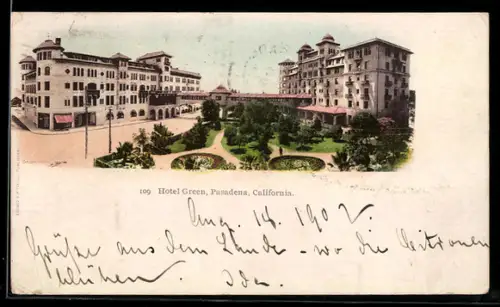 109 Hotel Green, Pasadena, California.
Aug. 18. 1902.
Grüße aus dem Lande - wo die Citronen
blühen. Ida.